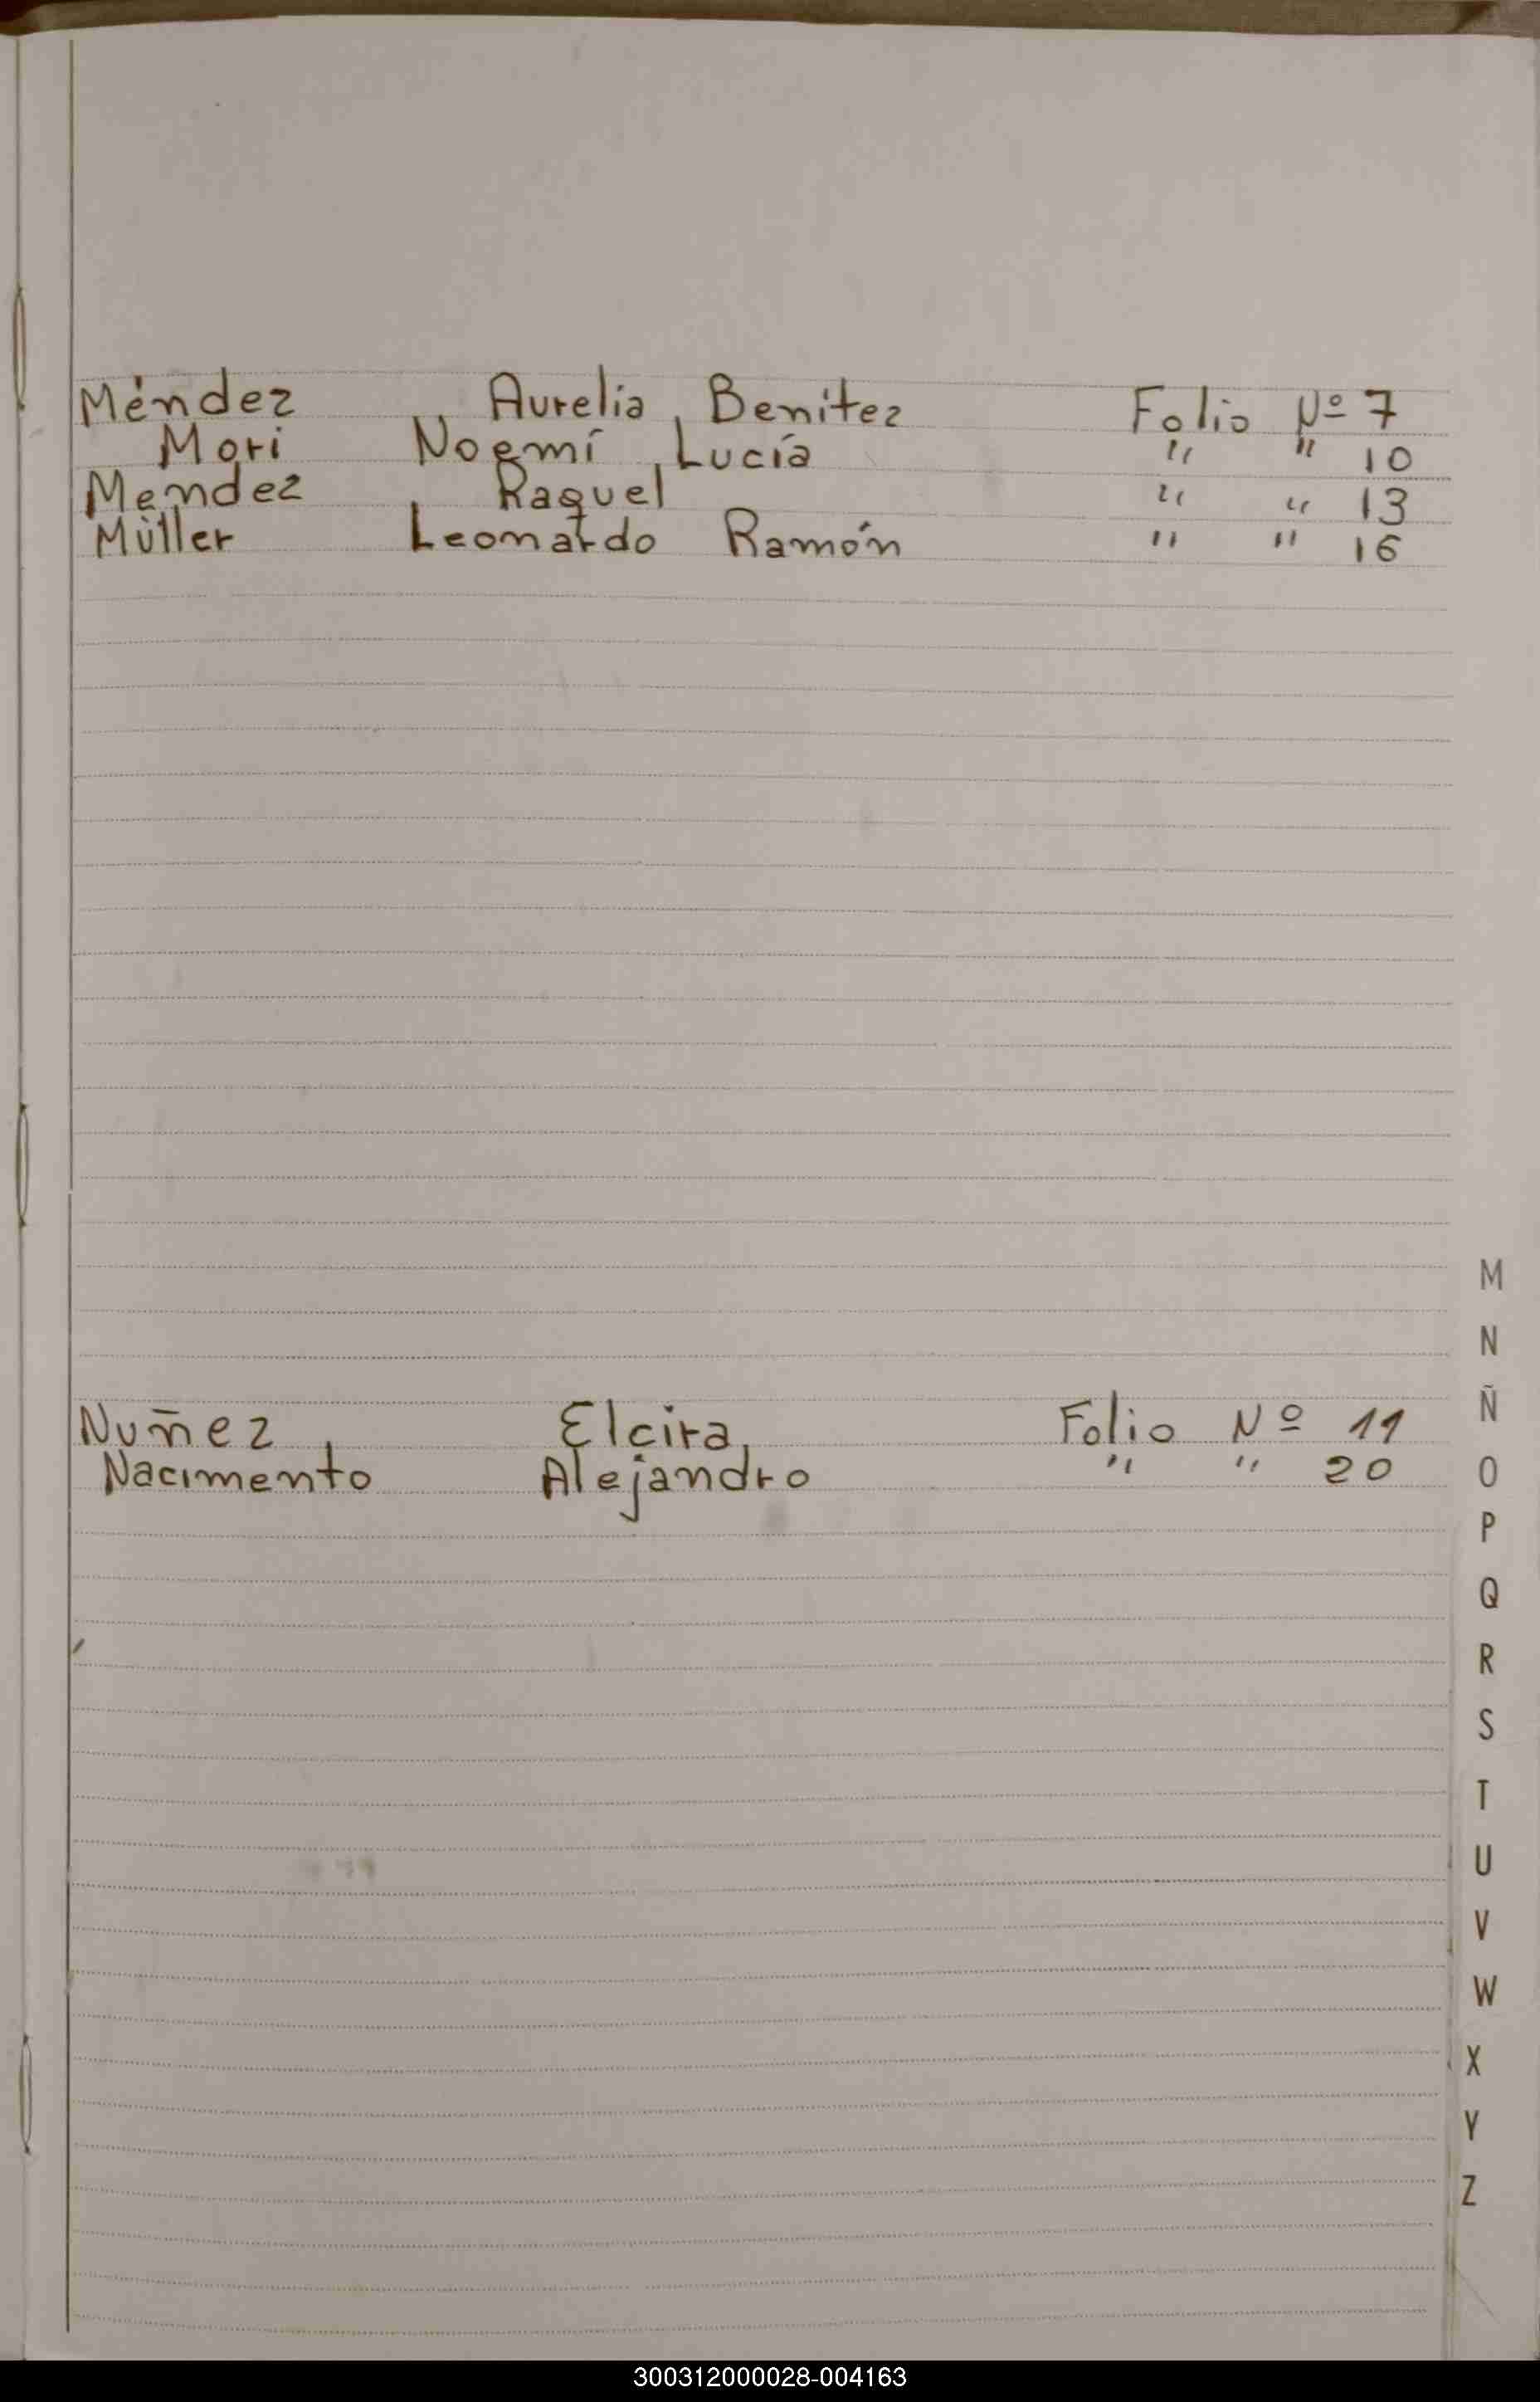 Méndez , Aurelia , Benitez Folio Nº 7
Mori Noemí , Lucía " " 10
Mendez , Raquel " " 13
Müller Leonardo Ramón " " 16
M
N
Ñ
Nuñez , Elcira, Folio Nº 11
Nacimento Alejandro " " 20
O
P
Q
R
S
T
U
V
W
X
Y
Z
300312000028-004163